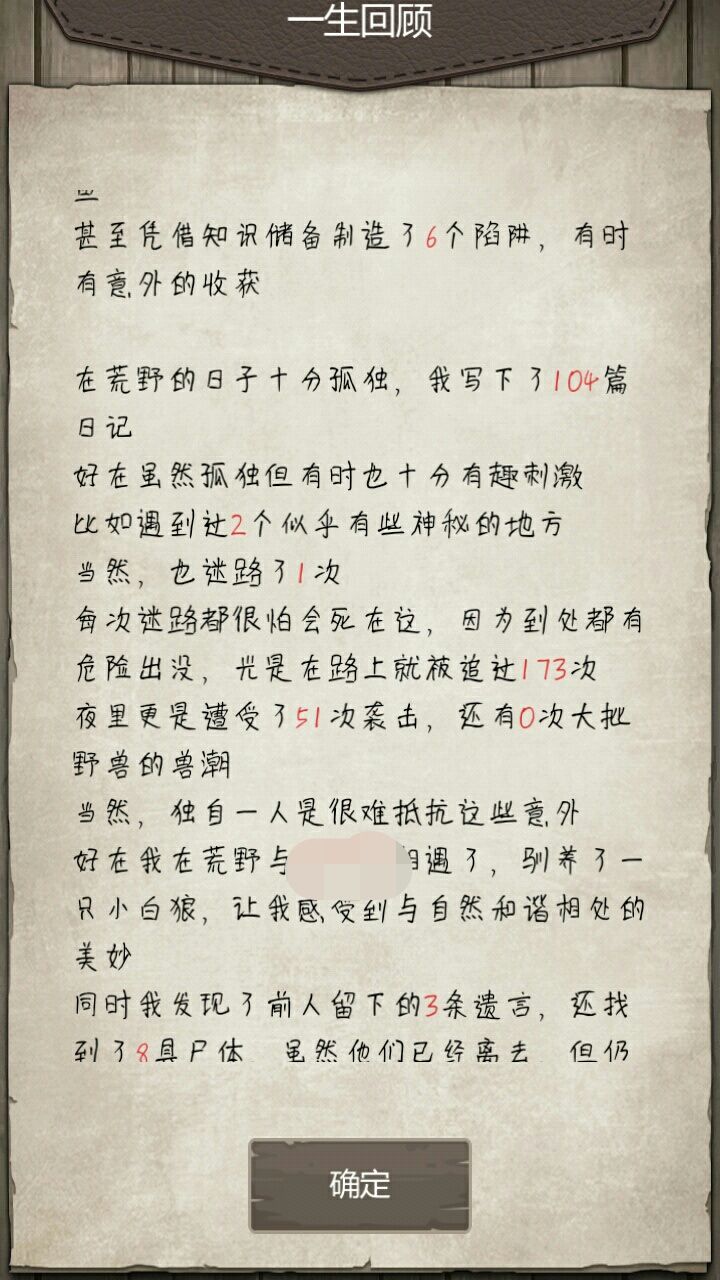 一生回顾
甚至凭借知识储备制造了6个陷阱，有时
有意外的收获
在荒野的日子十分孤独，我写下了104篇
日记
好在虽然孤独但有时也十分有趣刺激
比如遇到过2个似乎有些神秘的地方
当然，也迷路了1次
每次迷路都很怕会死在这，因为到处都有
危险出没，光是在路上就被追过173次
夜里更是遭受了51次袭击，还有0次大批
野兽的兽潮
当然，独自一人是很难抵抗这些意外
好在我在荒野与 相遇了，驯养了一
只小白狼，让我感受到与自然和谐相处的
美妙
同时我发现了前人留下的3条遗言，还找
到了8具尸体，虽然他们已经离去，但仍
确定